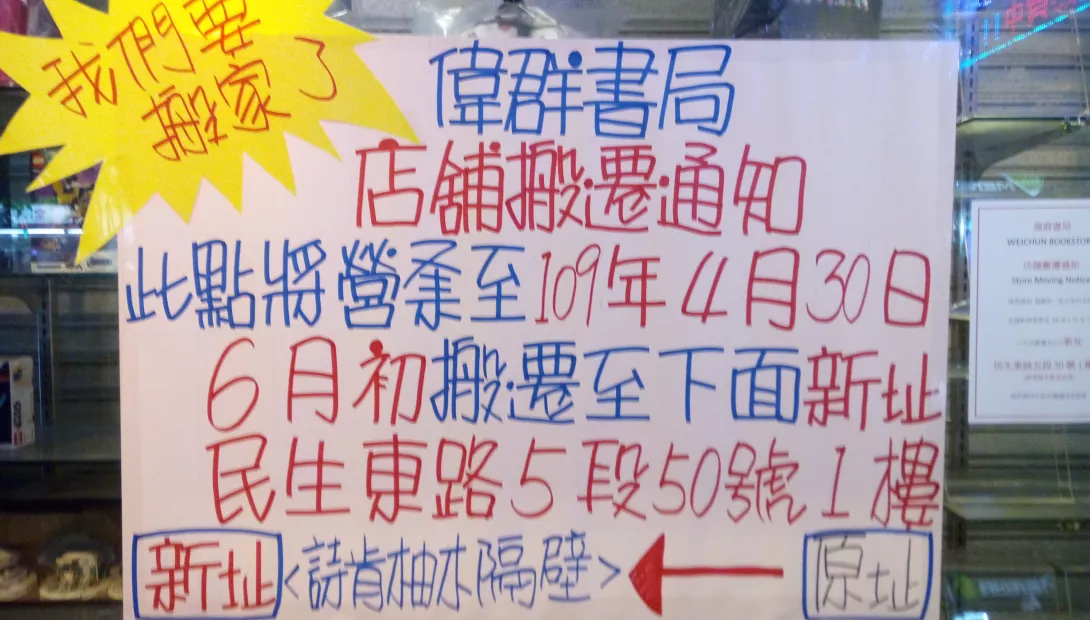 我們要
搬家了
偉群書局
店舖搬遷通知
此點將營業至109年4月30日
6月初搬遷至下面新址
民生東路5段50號1樓
新址<詩肯柚木隔壁> 原址
偉群書局
WEICHUN BOOKSTORE
店舖搬遷通知
Store Moving Notice